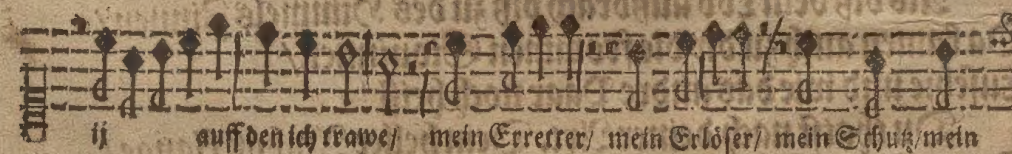 ij auff den ich trawe/ mein Erretter/ mein Erlöser/ mein Schutz/ mein